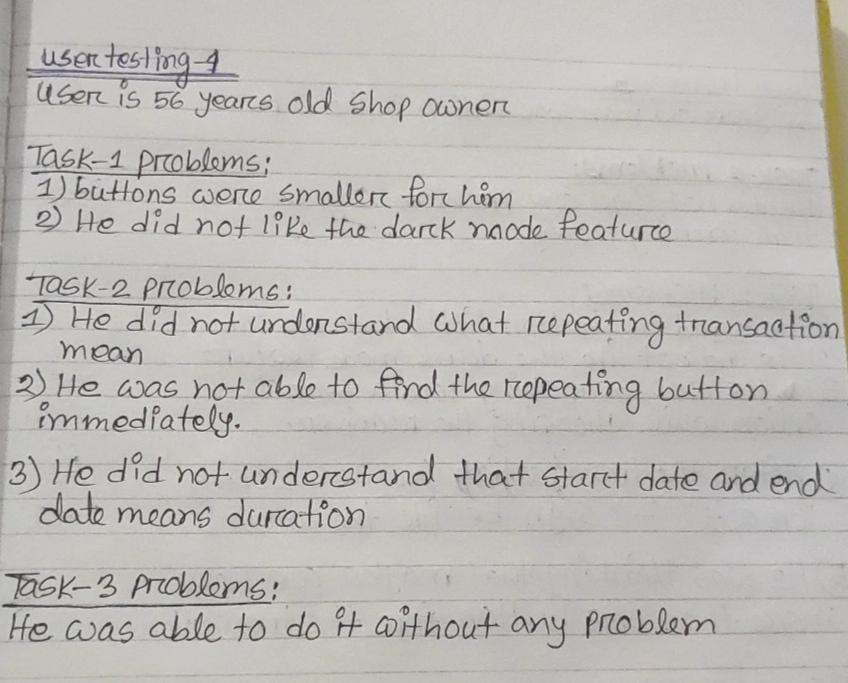 User testing-4
User is 56 years old shop owner
Task-1 problems:
1) buttons were smaller for him
2) He did not like the dark mode feature
Task-2 problems:
1) He did not understand what repeating transaction
mean
2) He was not able to find the repeating button
immediately.
3) He did not understand that start date and end
date means duration
Task-3 problems:
He was able to do it without any problem